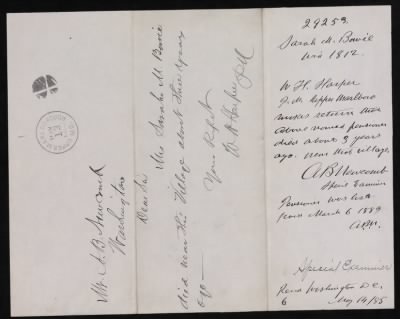 Mr. A. B. Newcomb
Washington
Dear Sir
Mrs Sarah M Bowie
died near this Village about three years
ago —
Yours Respt
W H Harper J M
29253
Sarah M. Bowie
Wid 1812.
W. H. Harper
J. M. Upper Marlboro
makes return that
above named pensioner
died about 3 years
ago. near this village.
A B Newcomb
Spec Examiner
Pensioner was last
from March 6 1883
Special Examiner
Washington D.C.
6
May 14/85